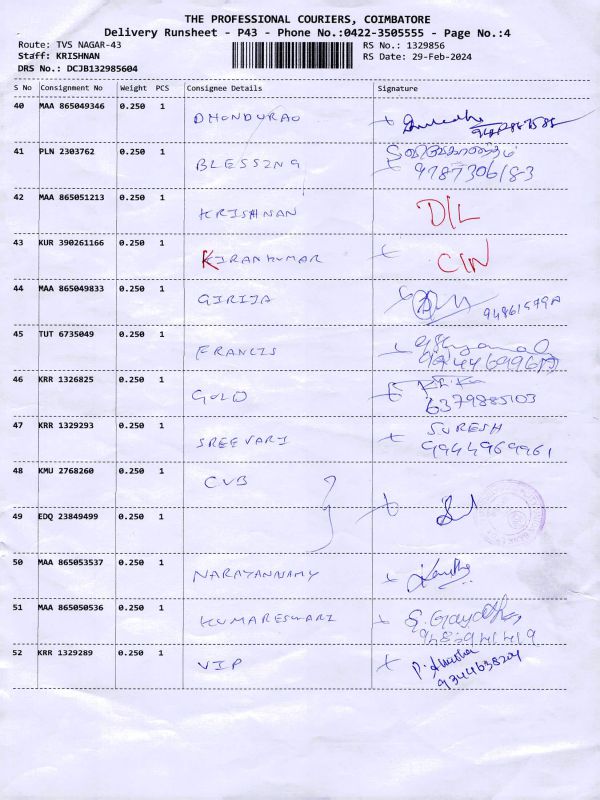 THE PROFESSIONAL COURIERS, COIMBATORE
Delivery Runsheet - P43 - Phone No.:0422-3505555 - Page No.:4
Route: TVS NAGAR-43 RS No.: 1329856
Staff: KRISHNAN RS Date: 29-Feb-2024
DRS No.: DCJB132985604
S No Consignment No Weight PCS Consignee Details Signature
40 MAA 865049346 0.250 1 DHONDURAO
41 PLN 2303762 0.250 1 BLESSING 9787306183
42 MAA 865051213 0.250 1 KRISHNAN D/L
43 KUR 390261166 0.250 1 KIRANKUMAR C/N
44 MAA 865049833 0.250 1 GIRIJA
45 TUT 6735049 0.250 1 FRANCIS
46 KRR 1326825 0.250 1 GOLD 6379885103
47 KRR 1329293 0.250 1 SREEVARI SURESH
9944969961
48 KMU 2768260 0.250 1 CUB
49 EDQ 23849499 0.250 1
50 MAA 865053537 0.250 1 NARAYANNAMY
51 MAA 865050536 0.250 1 KUMARESWARI
52 KRR 1329289 0.250 1 VIP 9344638204